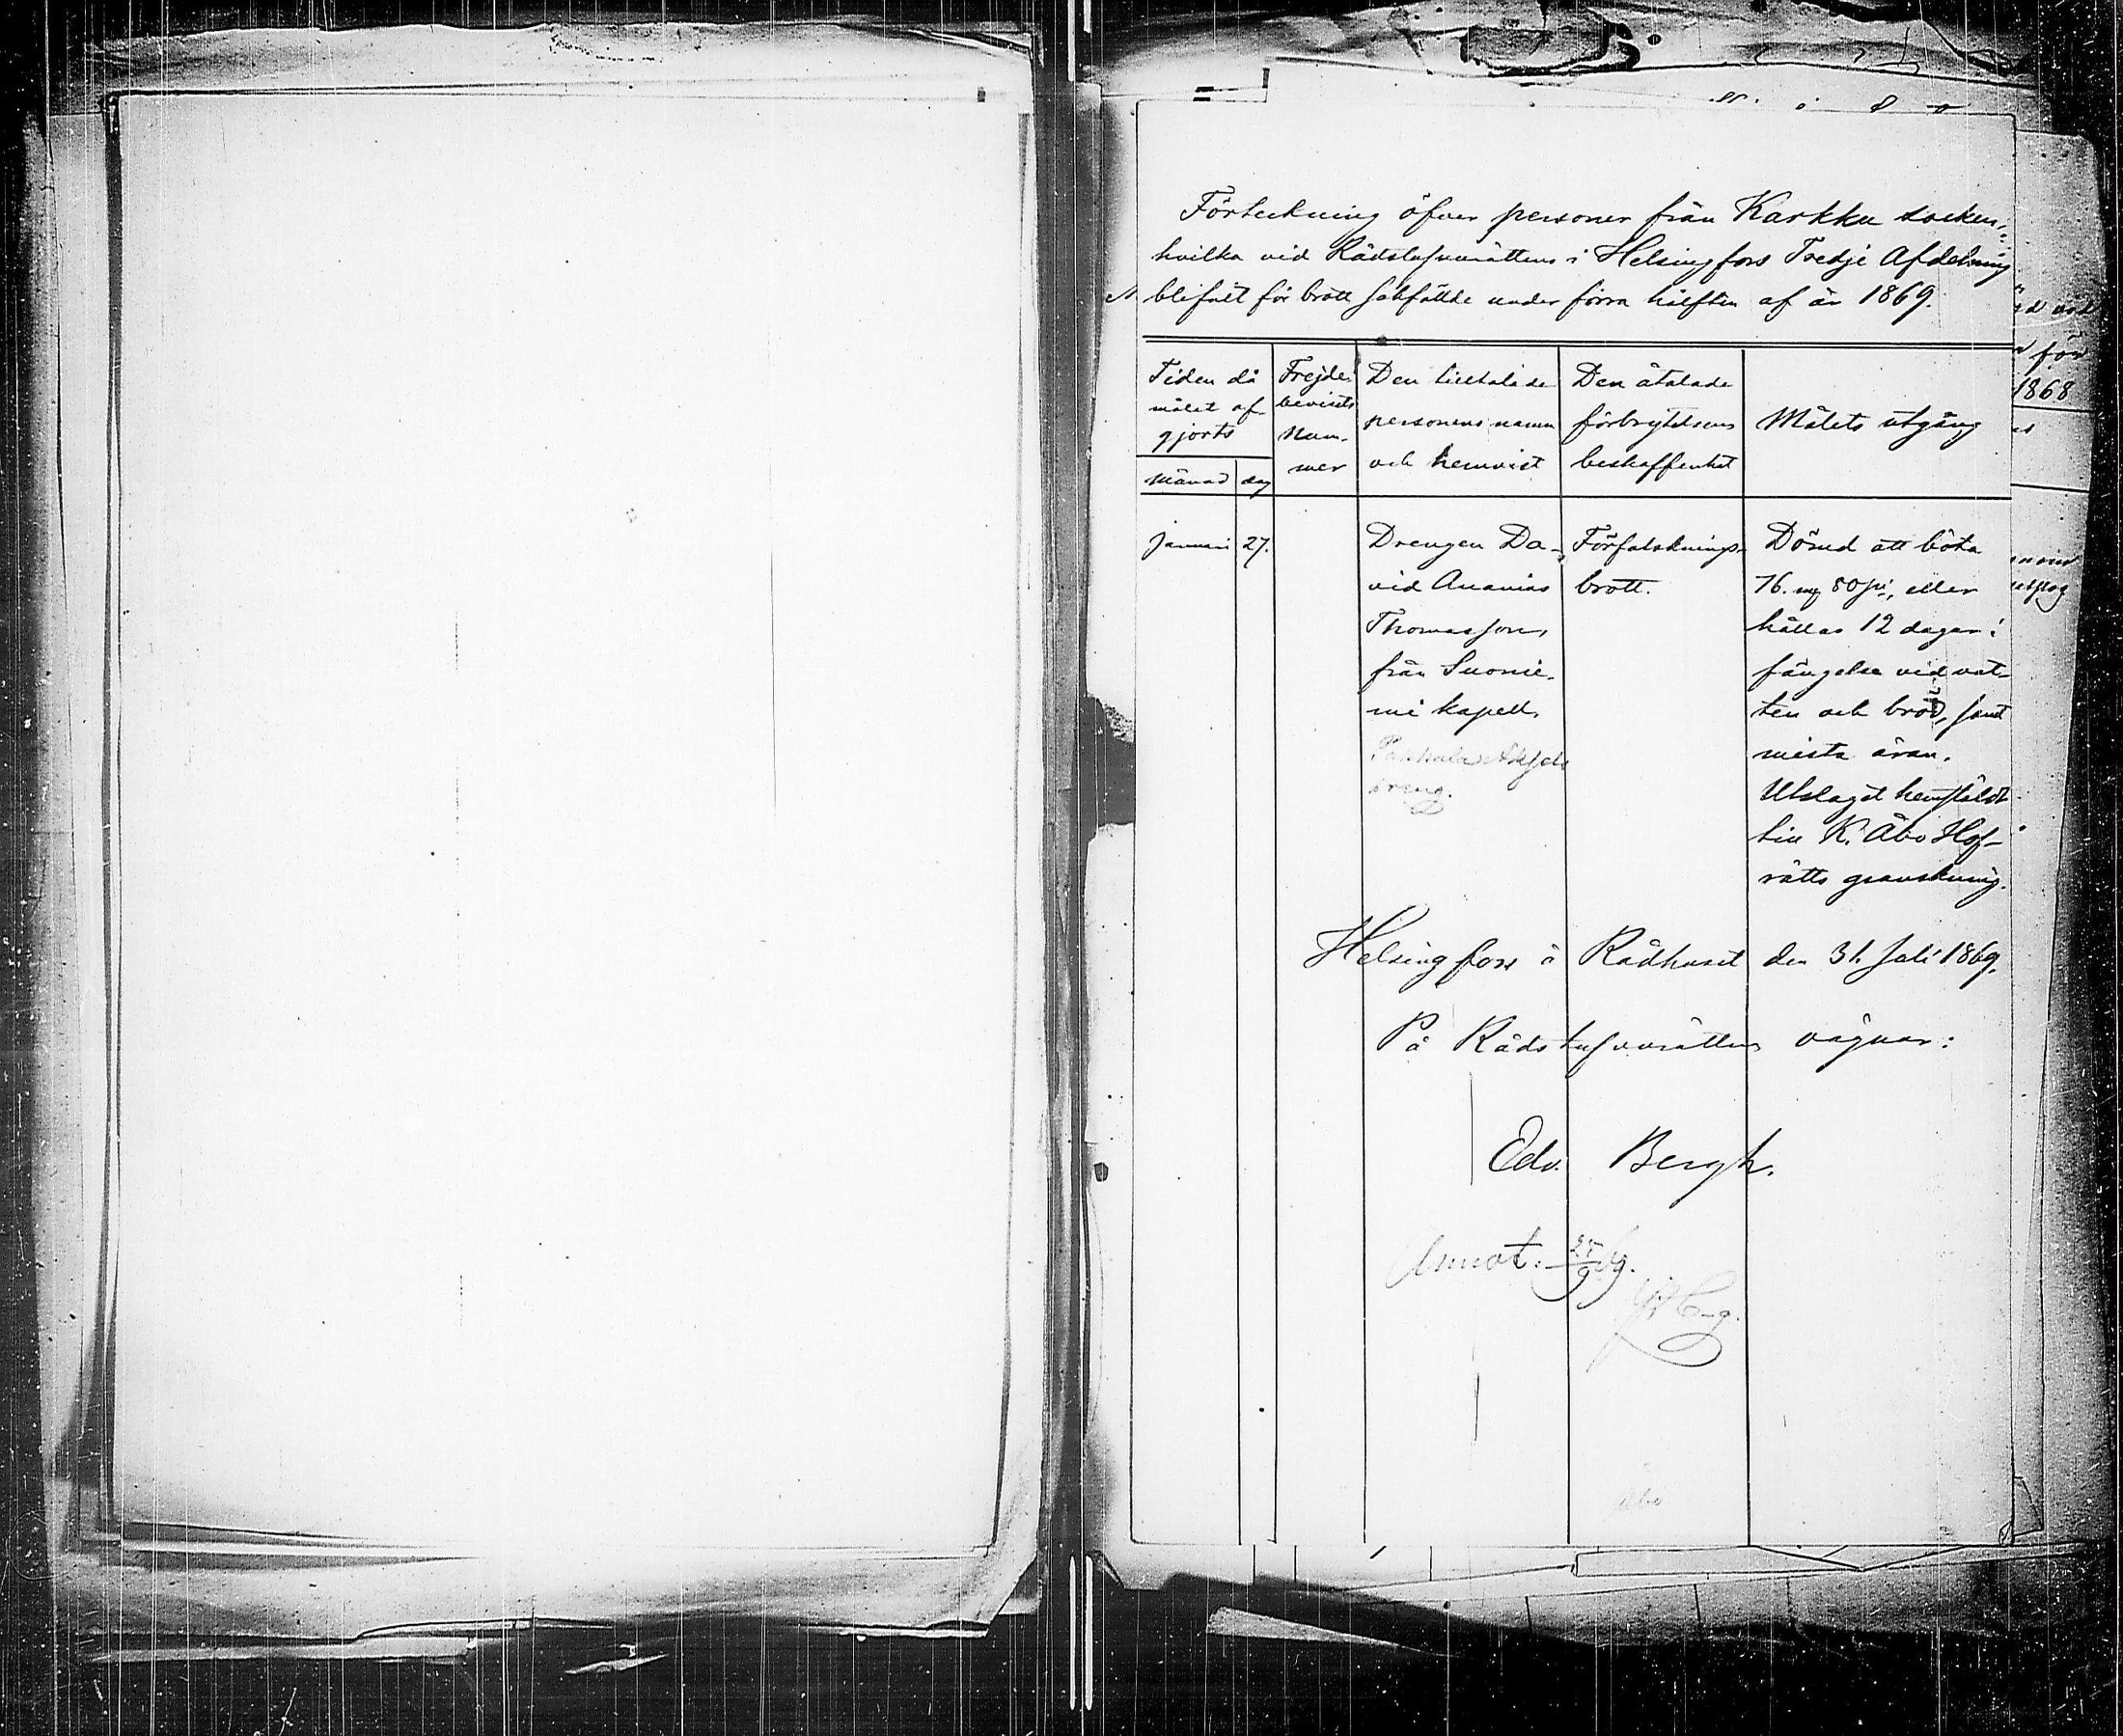 Förteckning öfver personer från Karkku socken,
hvilka vid Rådstufvurättens i Helsingfors Tredje Afdelning
blifvit för brott sakfällde under förra hälften af år 1869.
Tiden då målet af gjorts
Månad dag
Frejde bevisets Num- mer
Den tilltalade personens namn och hemvist
Den åtalade förbrytelsens beskaffenhet
Målets utgång
Januari 27.
Drengen Da-
vid Ananias
Thomasson,
från Suonie-
mi kapell.
dreng.
Förfalsknings-
brott.
Dömd att böta
76. mk 80 pi, eller
hållas 12 dagar i
fängelse vid vat-
ten och bröd, samt
mista äran.
Utslaget hemstäldt
till K. Åbo Hof-
rätts granskning.
Helsingfors å Rådhuset den 31 Juli 1869.
På Rådstufvurättens vägnar:
Edv. Bergh.
Annot. 25/9 69.
Åbo
ed vid
för
1868